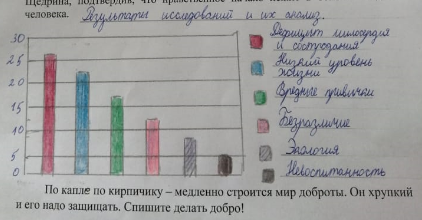 Щедрина, подтвердив, что нравственное начало
человека. Результаты исследований и их анализ.
30
25
20
15
10
5
0
Дефицит милосердия
и сострадания
Низкий уровень
жизни
Вредные привычки
Безразличие
Экология
Невоспитанность
По капле по кирпичику – медленно строится мир доброты. Он хрупкий
и его надо защищать. Спишите делать добро!